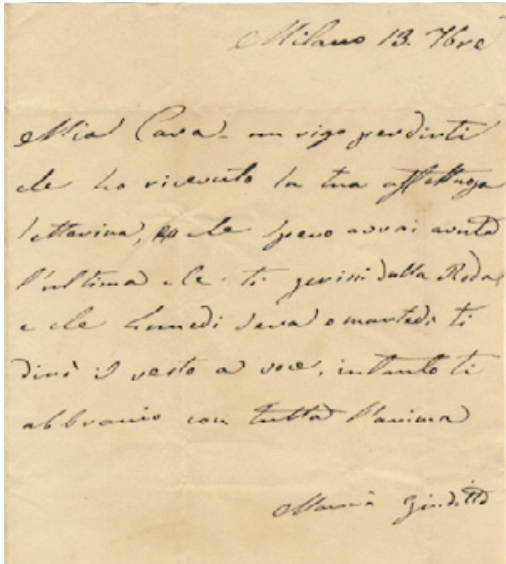 Milano 13. 7bre
Mia Cara - un rigo per dirti
che ho ricevuto la tua affettuosa
letterina, che spero avrai avuta
l'ultima che ti scrissi dalla Roda,
e che Lunedi sera o martedi ti
dirò il resto a voce, intanto ti
abbraccio con tutta l'anima
Mamà Giuditta